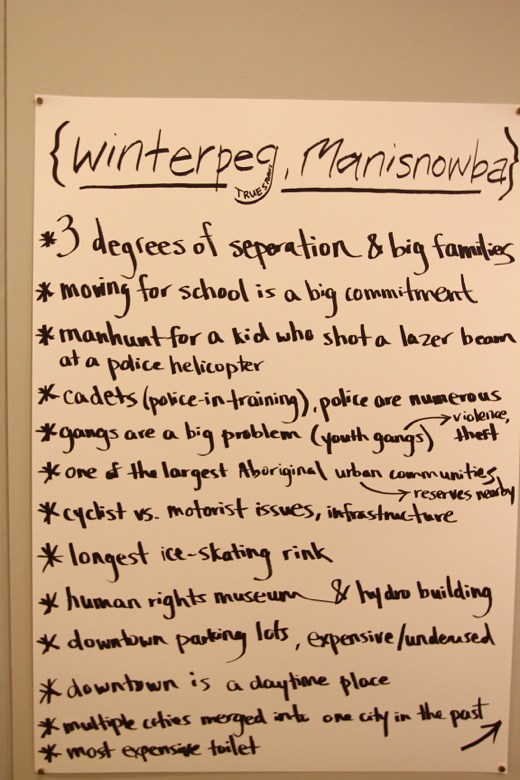 {Winterpeg, Manisnowba}
* 3 degrees of seperation & big families
* moving for school is a big commitment
* manhunt for a kid who shot a lazer beam
at a police helicopter
* cadets (police-in-training), police are numerous
* gangs are a big problem (youth gangs) → violence,
theft
* one of the largest Aboriginal urban communities
→ reserves nearby
* cyclist vs. motorist issues, infrastructure
* longest ice-skating rink
* human rights museum & hydro building
* downtown parking lots, expensive/underused
* downtown is a daytime place
* multiple cities merged into one city in the past
* most expensive toilet